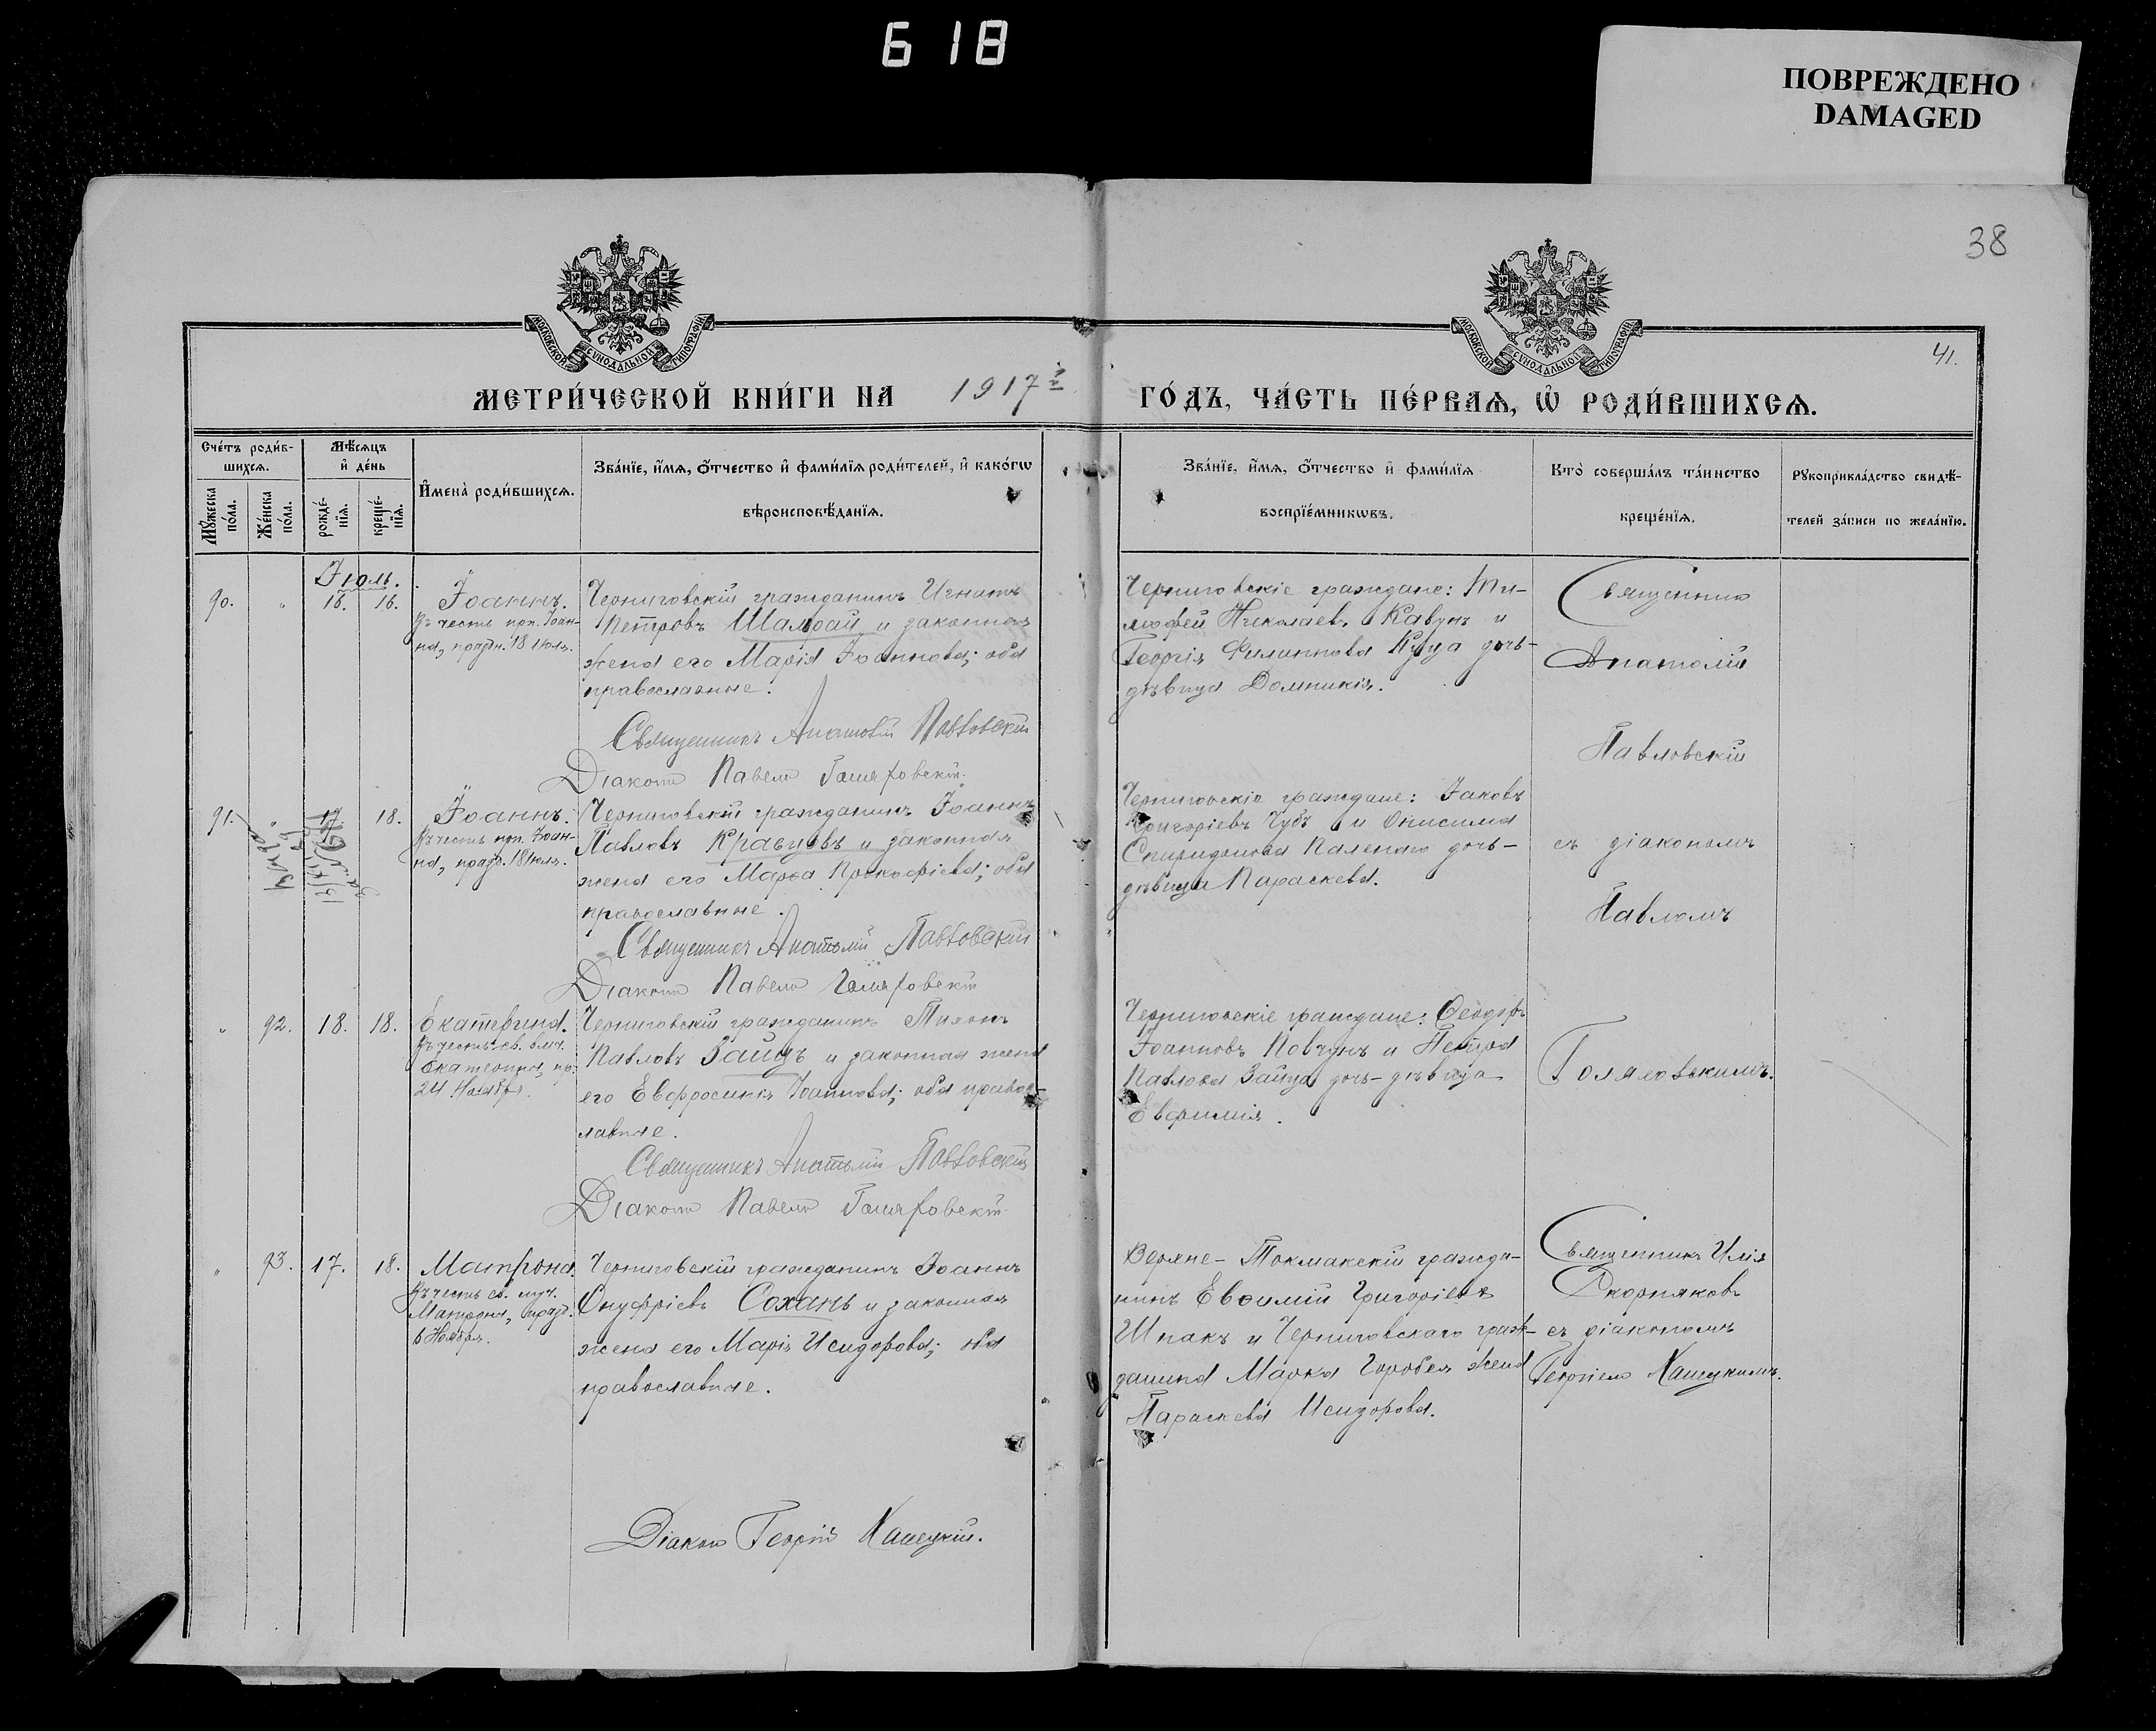 618
ПОВРЕЖДЕНО
DAMAGED
38
МОСКОВСКОЙ СѴНОДАЛЬНОЙ ТИПОГРАФІИ
МОСКОВСКОЙ СѴНОДАЛЬНОЙ ТИПОГРАФІИ
41.
МЕТРИ́ЧЕСКОЙ КНИ́ГИ НА 1917 г. ГО́ДЪ, ЧА́СТЬ ПЕ́РВАѦ, Ѽ РОДИ́ВШИХСѦ.
Сче́тъ роди́в-
шихсѧ.
Мꙋ́жеска по́ла.
Же́нска по́ла.
Мѣ́сѧцъ
и҆ де́нь
рожде́-
нїѧ.
креще́-
нїѧ.
И҆мена̀ роди́вшихсѧ.
Зва́нїе, и҆́мѧ, ѻ҆́тчество и҆ фами́лїѧ роди́телей, и҆ како́гѡ
вѣроисповѣ́данїѧ.
Зва́нїе, и҆́мѧ, ѻ҆́тчество и҆ фами́лїѧ
воспрїе́мникѡвъ.
Кто̀ соверша́лъ та́инство
креще́нїѧ.
Рꙋкоприкла́дство свидѣ́-
телей за́писи по жела́нїю.
Іюль.
90. " 18. 16.
Іоаннъ.
Въ честь прп. Іоан-
на, праздн. 18 іюля.
Черниговскій гражданинъ Игнатъ
Петровъ Шамрай и законная
жена его Марія Іоаннова; оба
православные.
Священникъ Анатолій Павловскій
Діаконъ Павелъ Голяховскій
Черниговскіе граждане: Ти-
мофей Николаевъ Кавунъ и
Георгія Филиппова Куца дочь-
дѣвица Домникія.
Священникъ
Анатолій
Павловскій
съ діакономъ
Павломъ
Голяховскимъ.
91. " 17. 18.
Іоаннъ.
Въ честь прп. Іоан-
на, празд. 18 іюля.
Черниговскій гражданинъ Іоаннъ
Павловъ Кравцовъ и законная
жена его Марѳа Прокофіева; оба
православные.
Священникъ Анатолій Павловскій
Діаконъ Павелъ Голяховскій
Черниговскіе граждане: Іаковъ
Григоріевъ Чубъ и Онисима
Спиридонова Паленаго дочь-
дѣвица Параскева.
" 92. 18. 18.
Екатерина.
Въ честь св. влмч.
Екатерины, пр.
24 Ноября.
Черниговскій гражданинъ Тихонъ
Павловъ Заицъ и законная жена
его Евфросинія Іоаннова; оба право-
славные.
Священникъ Анатолій Павловскій
Діаконъ Павелъ Голяховскій
Черниговскіе граждане: Ѳеодоръ
Іоанновъ Повчунъ и Петра
Павлова Зайца дочь-дѣвица
Евфимія.
" 93. 17. 18.
Матрона.
Въ честь св. муч.
Матроны, празд.
6 Ноября.
Черниговскій гражданинъ Іоаннъ
Онуфріевъ Сохань и законная
жена его Марія Исидорова; оба
православные.
Діаконъ Георгій Канецкій.
Верхне-Токмакскій гражда-
нинъ Евѳимій Григоріевъ
Шпакъ и Черниговскаго граж-
данина Марка Горобея жена
Параскева Исидорова.
Священникъ Илія
Скорняковъ
съ діакономъ
Георгіемъ Канецкимъ.